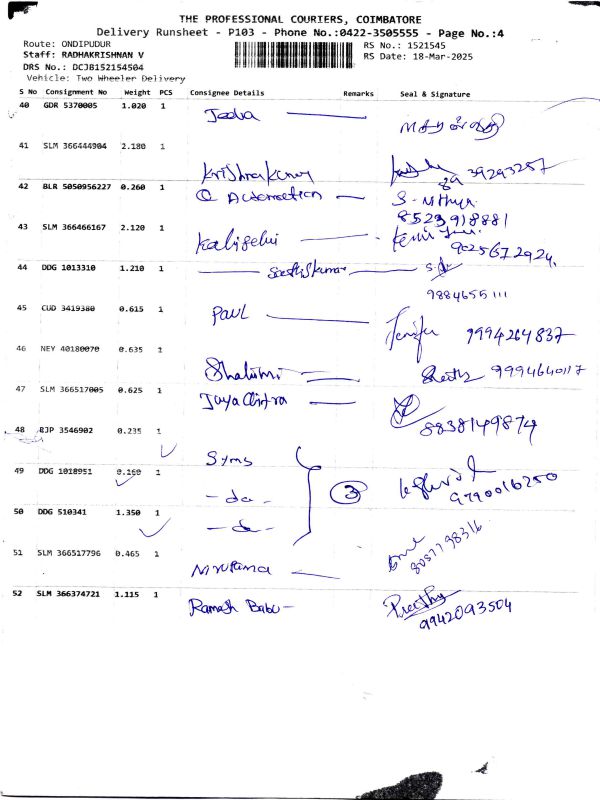 THE PROFESSIONAL COURIERS, COIMBATORE
Delivery Runsheet - P103 - Phone No.:0422-3505555 - Page No.:4
Route: ONDIPUDUR RS No.: 1521545
Staff: RADHAKRISHNAN V RS Date: 18-Mar-2025
DRS No.: DCJB152154504
Vehicle: Two Wheeler Delivery
S No Consignment No Weight PCS Consignee Details Remarks Seal & Signature
40 GDR 5370005 1.020 1 Jeeba
41 SLM 366444904 2.180 1 Krishnakumar 89 39293257
42 BLR 5050956227 0.260 1 Q Automation S. Nithya
8523918881
43 SLM 366466167 2.120 1 Kalaiselvi 9025672924
44 DDG 1013310 1.210 1 Sasthikumar
9884655111
45 CUD 3419380 0.615 1 Paul Jenifer 9994264837
46 NEY 40180070 0.635 1 Shalini 9994640117
47 SLM 366517005 0.625 1 Jaya Chitra
8838149874
48 BJP 3546902 0.235 1 Syms
49 DDG 1018951 0.160 1 - do - 3 9790016250
50 DDG 510341 1.350 1 - do -
51 SLM 366517796 0.465 1 8057798316
52 SLM 366374721 1.115 1 Ramesh Babu - Preethy
9942093504